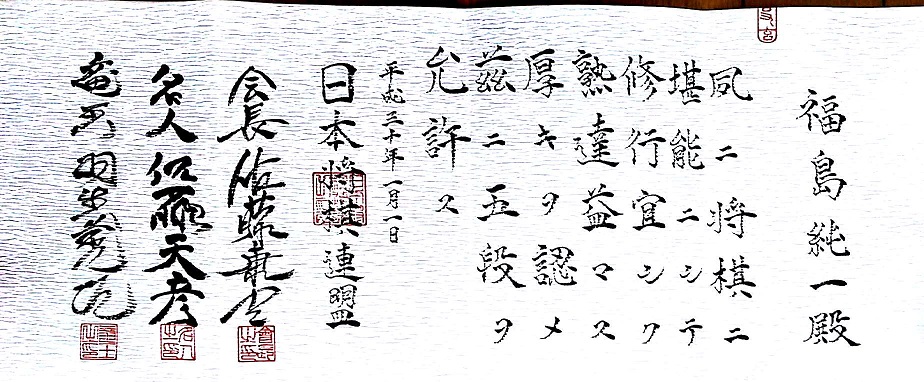 福島純一殿
夙ニ将棋ニ
堪能ニシテ
修行宜シク
熟達益マス
厚キヲ認メ
茲ニ五段ヲ
允許ス
平成三十年一月一日
日本将棋連盟
会長 佐藤康光
名人 佐藤天彦
竜王 羽生善治